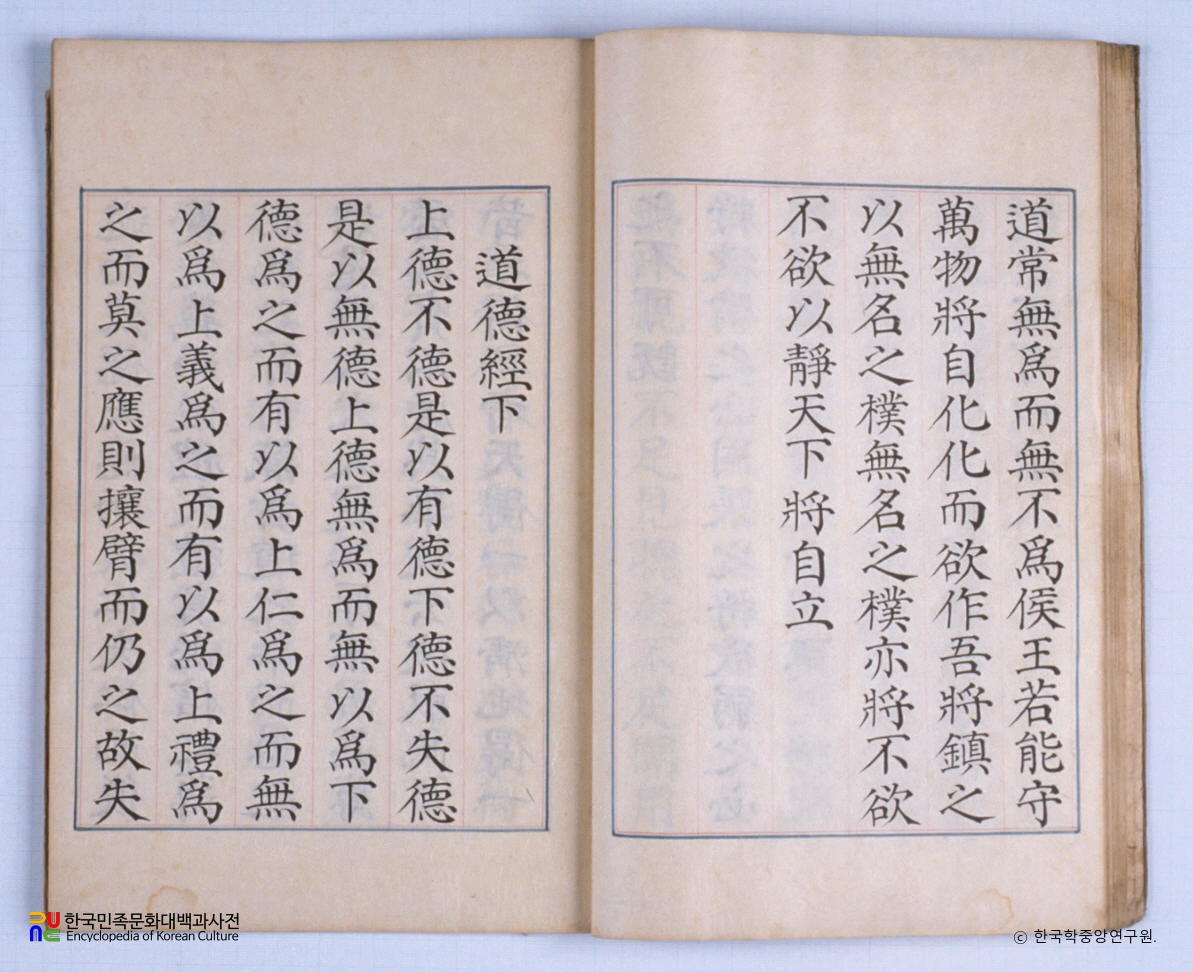 道常無爲而無不爲侯王若能守
萬物將自化化而欲作吾將鎮之
以無名之樸無名之樸亦將不欲
不欲以靜天下將自立
道德經下
上德不德是以有德下德不失德
是以無德上德無爲而無以爲下
德爲之而有以爲上仁爲之而無
以爲上義爲之而有以爲上禮爲
之而莫之應則攘臂而仍之故失
한국민족문화대백과사전
Encyclopedia of Korean Culture
© 한국학중앙연구원.